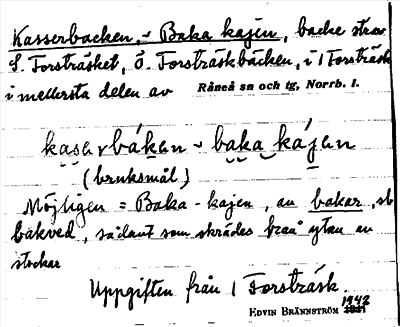 Kasserbacken, ~ Baka kajen, backe strax
S. Forsträsket, Ö. Forsträskbäcken, i 1 Forsträsk
i mellersta delen av Råneå sn och tg, Norrb. l.
kaservbáken ~ baka kájen
(bruksmål)
Möjligen = Baka-kajen, av bakar, sb
bakved, sådant som skrädes från ytan av
stockar
Uppgiften från 1 Forsträsk.
EDVIN BRÄNNSTRÖM 1942